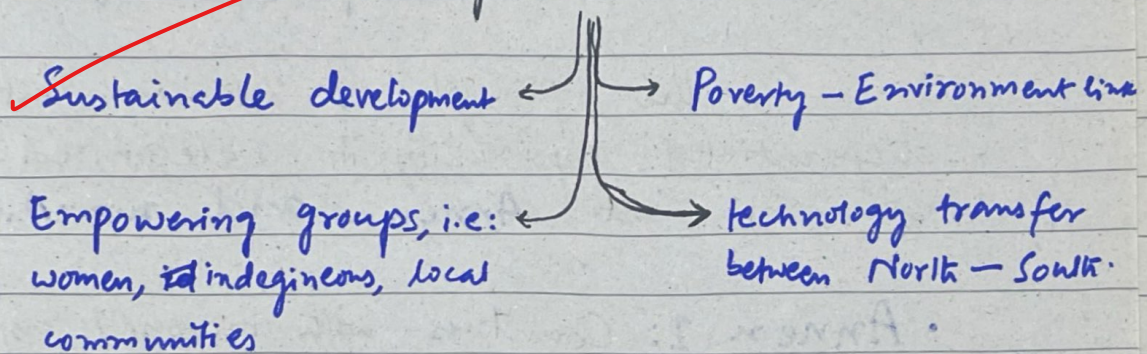 Sustainable development
Poverty - Environment link
Empowering groups, i.e:
women, indegineous, local
communities
technology transfer
between North - South.